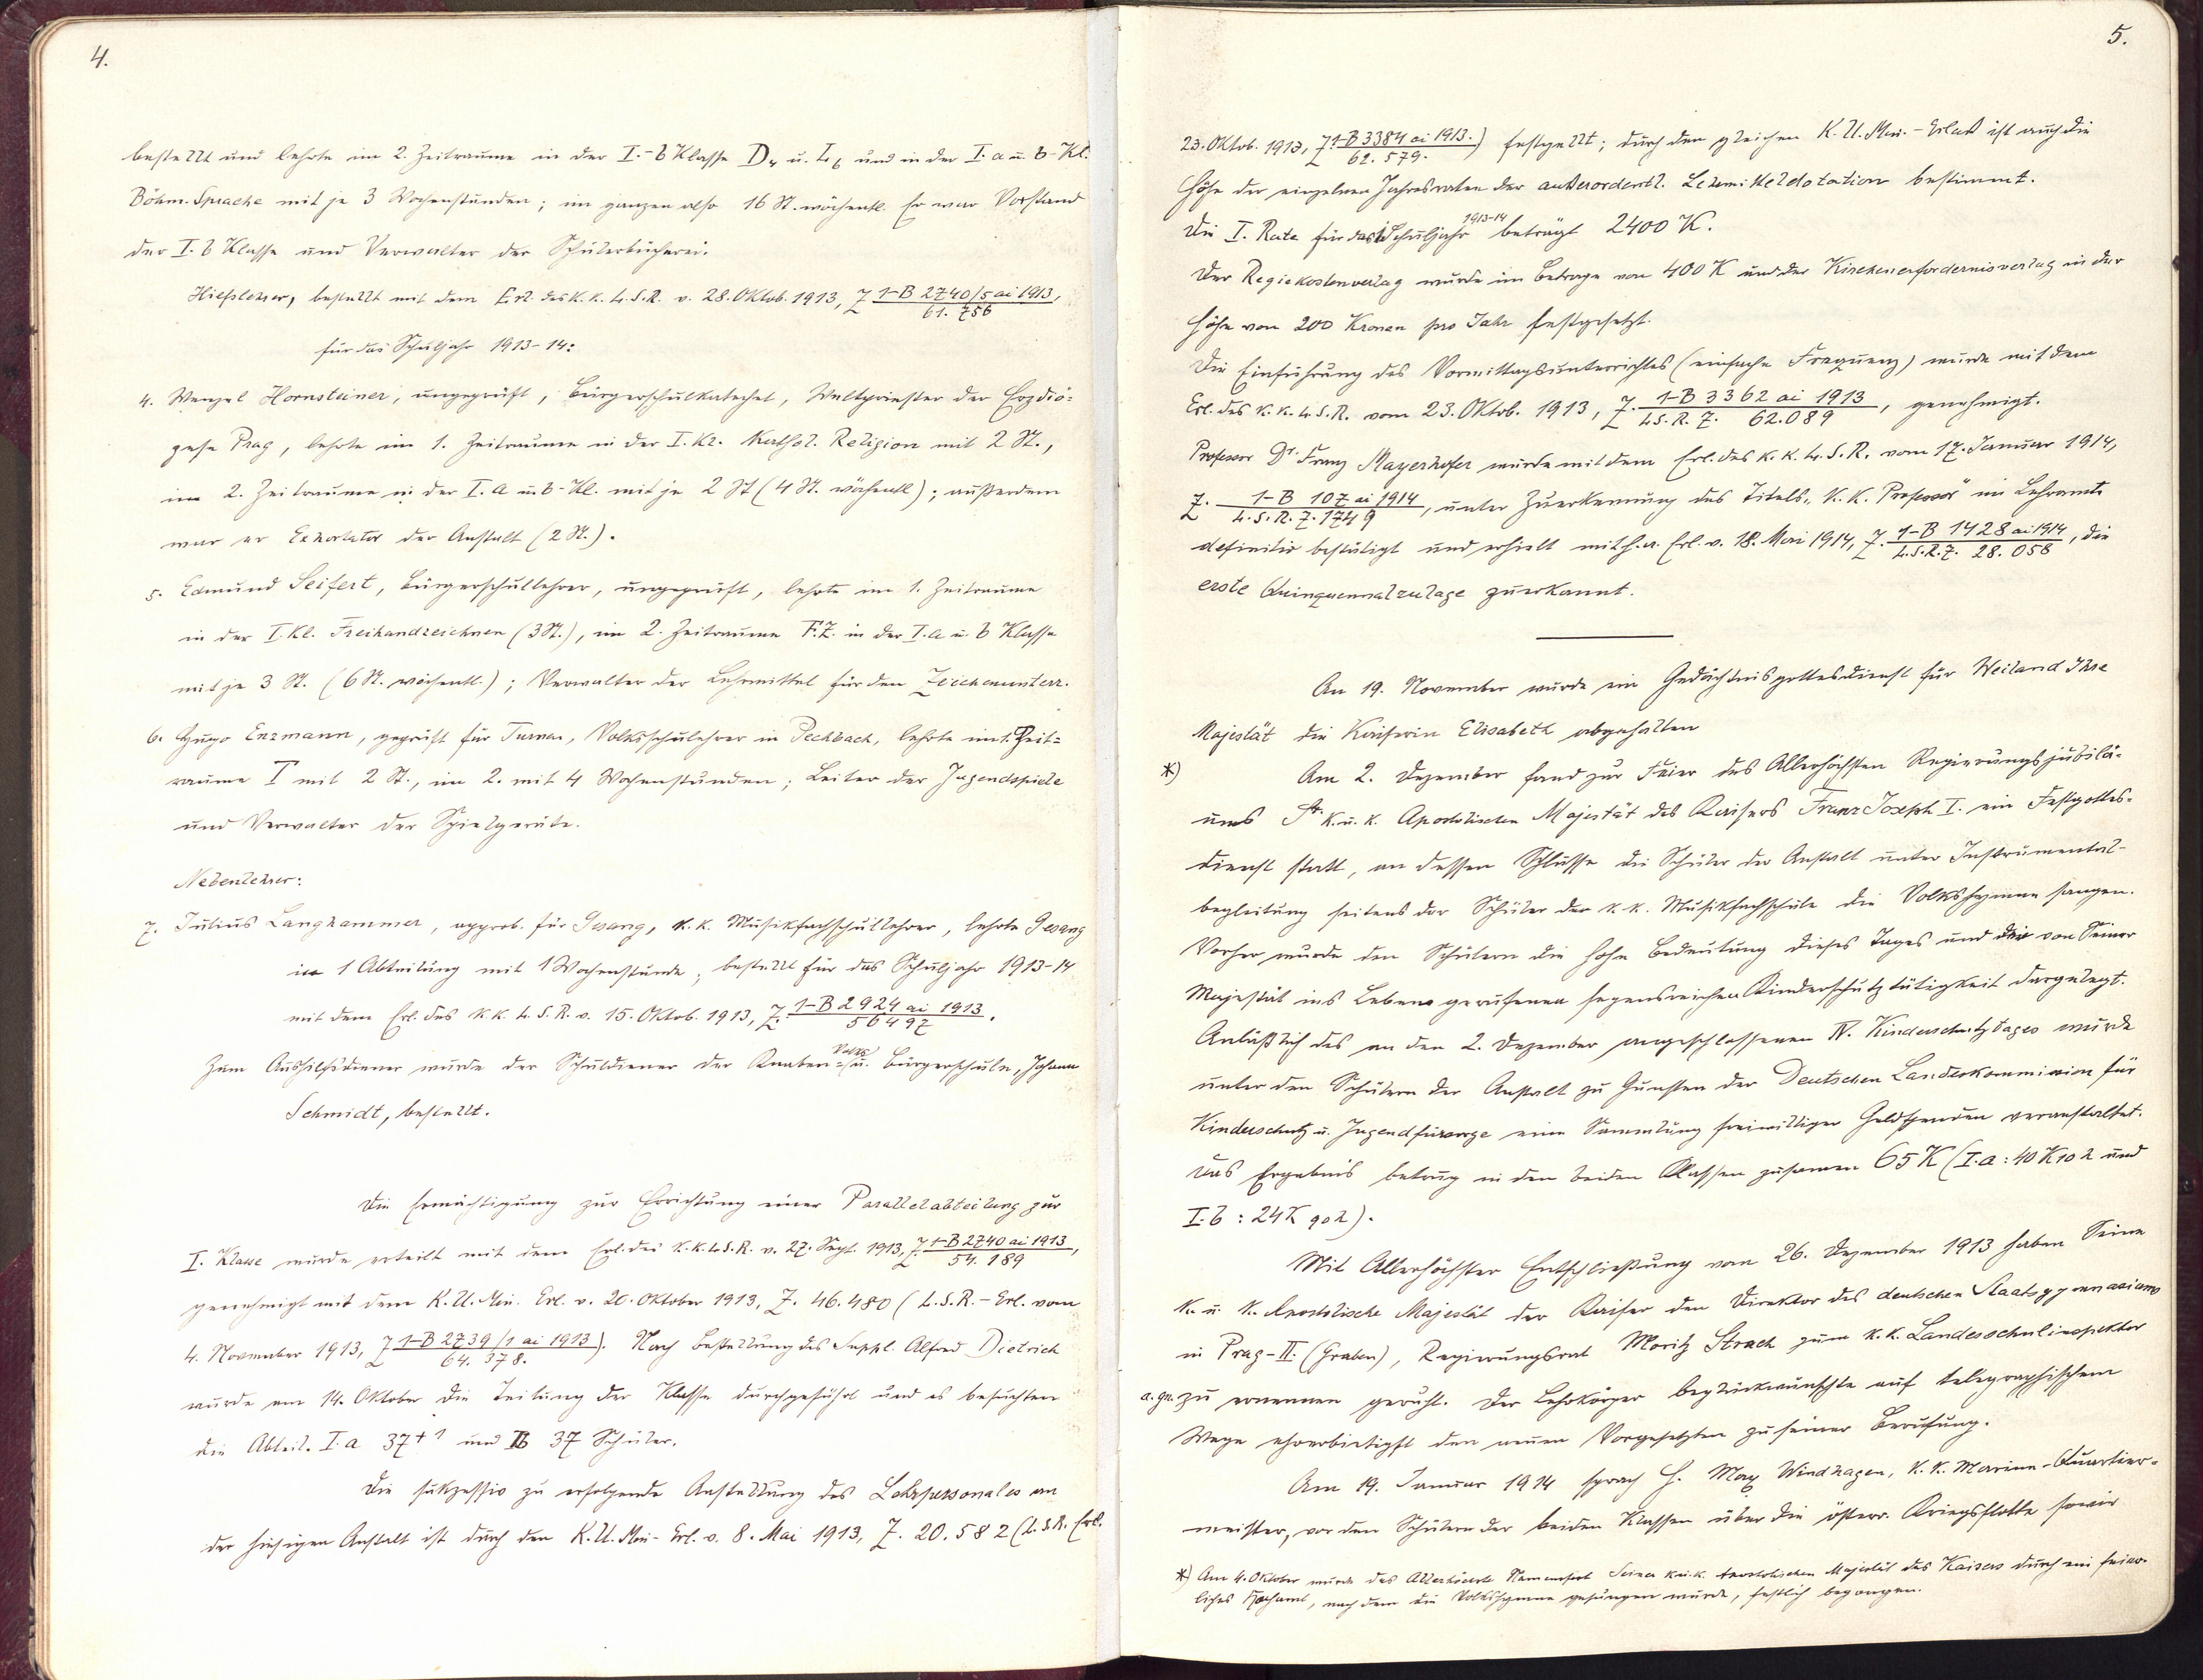 4.
bestellt und lehrte im 2. Zeitraume in der I.-b Klasse D₄ u. L₆ und in der I. a u. b-Kl.
Böhm. Sprache mit je 3 Wochenstunden; im ganzen also 16 St. wöchentl. Er war Vorstand
der I. b Klasse und Verwalter der Schülerbücherei.
Hilfslehrer, bestellt mit dem Erl. des k. k. L. S. R. v. 28. Oktob. 1913, Z 1-B 2740/5 ai 1913,
61. 756
für das Schuljahr 1913-14:
4. Wenzel Hornsteiner, ungeprüft, Bürgerschulkatechet, Weltpriester der Erzdiö=
zese Prag, lehrte im 1. Zeitraume in der I. Kl. Kathol. Religion mit 2 St.,
im 2. Zeitraume in der I. a u. b-Kl. mit je 2 St (4 St. wöchentl); außerdem
war er Exhortator der Anstalt (2 St.).
5. Edmund Seifert, Bürgerschullehrer, ungeprüft, lehrte im 1. Zeitraume
in der I. Kl. Freihandzeichnen (3 St.), im 2. Zeitraume F. Z. in der I. a u. b Klasse
mit je 3 St. (6 St. wöchentl.); Verwalter der Lehrmittel für den Zeichenunterr.
6. Hugo Enzmann, geprüft für Turnen, Volksschullehrer in Pechbach, lehrte im 1. Zeit=
raume T mit 2 St., im 2. mit 4 Wochenstunden; Leiter der Jugendspiele
und Verwalter der Spielgeräte.
Nebenlehrer:
7. Julius Langhammer, approb. für Gesang, k. k. Musikfachschullehrer, lehrte Gesang
in 1 Abteilung mit 1 Wochenstunde, bestellt für das Schuljahr 1913-14
mit dem Erl. des k. k. L. S. R. v. 15. Oktob. 1913, Z. 1-B 2924 ai 1913.
56497
Zum Aushilfsdiener wurde der Schuldiener der Knaben- Volks u. Bürgerschule, Johann
Schmidt, bestellt.
Die Ermächtigung zur Errichtung einer Parallelabteilung zur
I. Klasse wurde erteilt mit dem Erl. des k. k. L. S. R. v. 27. Sept. 1913, Z 1-B 2740 ai 1913,
54. 189
genehmigt mit dem K. U. Min. Erl. v. 20. Oktober 1913, Z. 46.480 (L. S. R.- Erl. vom
4. November 1913, Z 1-B 2739/1 ai 1913). Nach Bestellung des Suppl. Alfred Dietrich
64. 378.
wurde am 14. Oktober die Teilung der Klasse durchgeführt und es besuchten
die Abteil. I. a 37+1 und Ib 37 Schüler.
Die sukzessiv zu erfolgende Anstellung des Lehrpersonales an
der hiesigen Anstalt ist durch den K. U. Min- Erl. v. 8. Mai 1913, Z. 20.582 (L. S. R. Erl.
5.
23. Oktob. 1913, Z 1-B 3384 ai 1913.) festgestellt; durch den gleichen K. U. Min.- Erlaß ist auch die
62. 579.
Höhe der einzelnen Jahresraten der außerordentl. Lehrmitteldotation bestimmt.
Die I. Rate für das Schuljahr 1913-14 beträgt 2400 K.
Der Regiekostenverlag wurde im Betrage von 400 K und der Kirchenerfordernisverlag in der
Höhe von 200 Kronen pro Jahr festgesetzt.
Die Einführung des Vormittagsunterrichtes (einfache Frequenz) wurde mit dem
Erl. des k. k. L. S. R. vom 23. Oktob. 1913, Z. 1-B 3362 ai 1913, genehmigt.
L. S. R. Z. 62.089
Professor Dr. Franz Mayerhofer wurde mit dem Erl. des k. k. L. S. R. vom 17. Januar 1914,
Z. 1-B 107 ai 1914, unter Zuerkennung des Titels „k. k. Professor" im Lehramte
L. S. R. Z. 1749
definitiv bestätigt und erhielt mit h. a. Erl. v. 18. Mai 1914, Z. 1-B 1428 ai 1914, die
L. S. R. Z. 28. 058
erste Quinquennalzulage zuerkannt.
An 19. November wurde ein Gedächtnisgottesdienst für Weiland Ihre
Majestät die Kaiserin Elisabeth abgehalten
*) Am 2. Dezember fand zur Feier des Allerhöchsten Regierungsjubilä-
ums Sr. k. u. k. Apostolischen Majestät des Kaisers Franz Joseph I. ein Festgottes=
dienst statt, an dessen Schlusse die Schüler der Anstalt unter Instrumental-
begleitung seitens der Schüler der k. k. Musikfachschule die Volkshymne sangen.
Vorher wurde den Schülern die hohe Bedeutung dieses Tages und der von Seiner
Majestät ins Leben gerufenen segensreichen Kinderschutztätigkeit dargelegt.
Anläßlich des an den 2. Dezember angeschlossenen IV. Kinderschutztages wurde
unter den Schülern der Anstalt zu Gunsten der Deutschen Landeskommission für
Kinderschutz u. Jugendfürsorge eine Sammlung freiwilliger Geldspenden veranstaltet.
Das Ergebnis betrug in den beiden Klassen zusammen 65 K (I. a : 40 K 10 h und
I. b : 24 K 90 h).
Mit Allerhöchster Entschließung vom 26. Dezember 1913 haben Seine
k. u. k. Apostolische Majestät der Kaiser den Direktor des deutschen Staatsgymnasiums
in Prag-II. (Graben), Regierungsrat Moritz Strach zum k. k. Landesschulinspektor
a. gn. zu ernennen geruht. Der Lehrkörper beglückwünschte auf telegraphischem
Wege ehrerbietigst den neuen Vorgesetzten zu seiner Berufung.
Am 19. Januar 1914 sprach H. Max Windhagen, k. k. Marine-Quartier=
meister, vor den Schülern der beiden Klassen über die österr. Kriegsflotte sowie
*) Am 4. Oktober wurde das Allerhöchste Namensfest Seiner k. u. k. Apostolischen Majestät des Kaisers durch ein feier-
liches Hochamt, nach dem die Volkshymne gesungen wurde, festlich begangen.